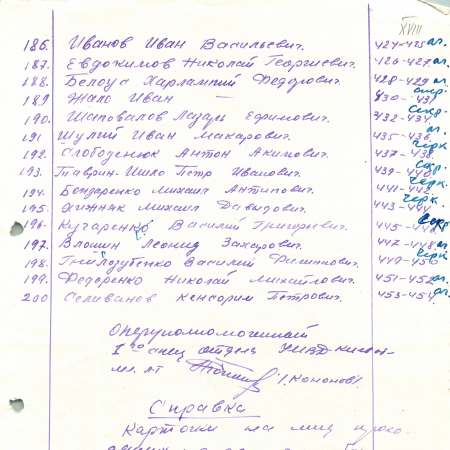 XVIII
186. Иванов Иван Васильевич. 424-425 ол.
187. Евдокимов Николай Георгиевич. 426-427 ол.
188. Белоус Харлампий Федорович. 428-429 ол.
189 Жало Иван — 430-431
190. Шаповалов Лазарь Ефимович. 432-434.
191 Шулий Иван Макарович. 435-436.
192. Слободенюк Антон Акимович. 437-438.
193. Гаврин-Шило Петр Иванович. 439-440.
194. Бондаренко Михаил Антипович. 441-442.
195. Хижняк Михаил Давыдович. 443-444
196. Кухаренко Василий Григорьевич. 445-446
197. Влошин Леонид Захарович. 447-448 ол.
198. Василий Филиппович. 449-450
199. Федоренко Николай Михайлович. 451-452 ол.
200 Селиванов Кенсорин Петрович. 453-454 ол.
Оперуполномоченный
1го спец отдела УНКВД
мл. лт /. Кононов/.
Справка
Карточки на лиц